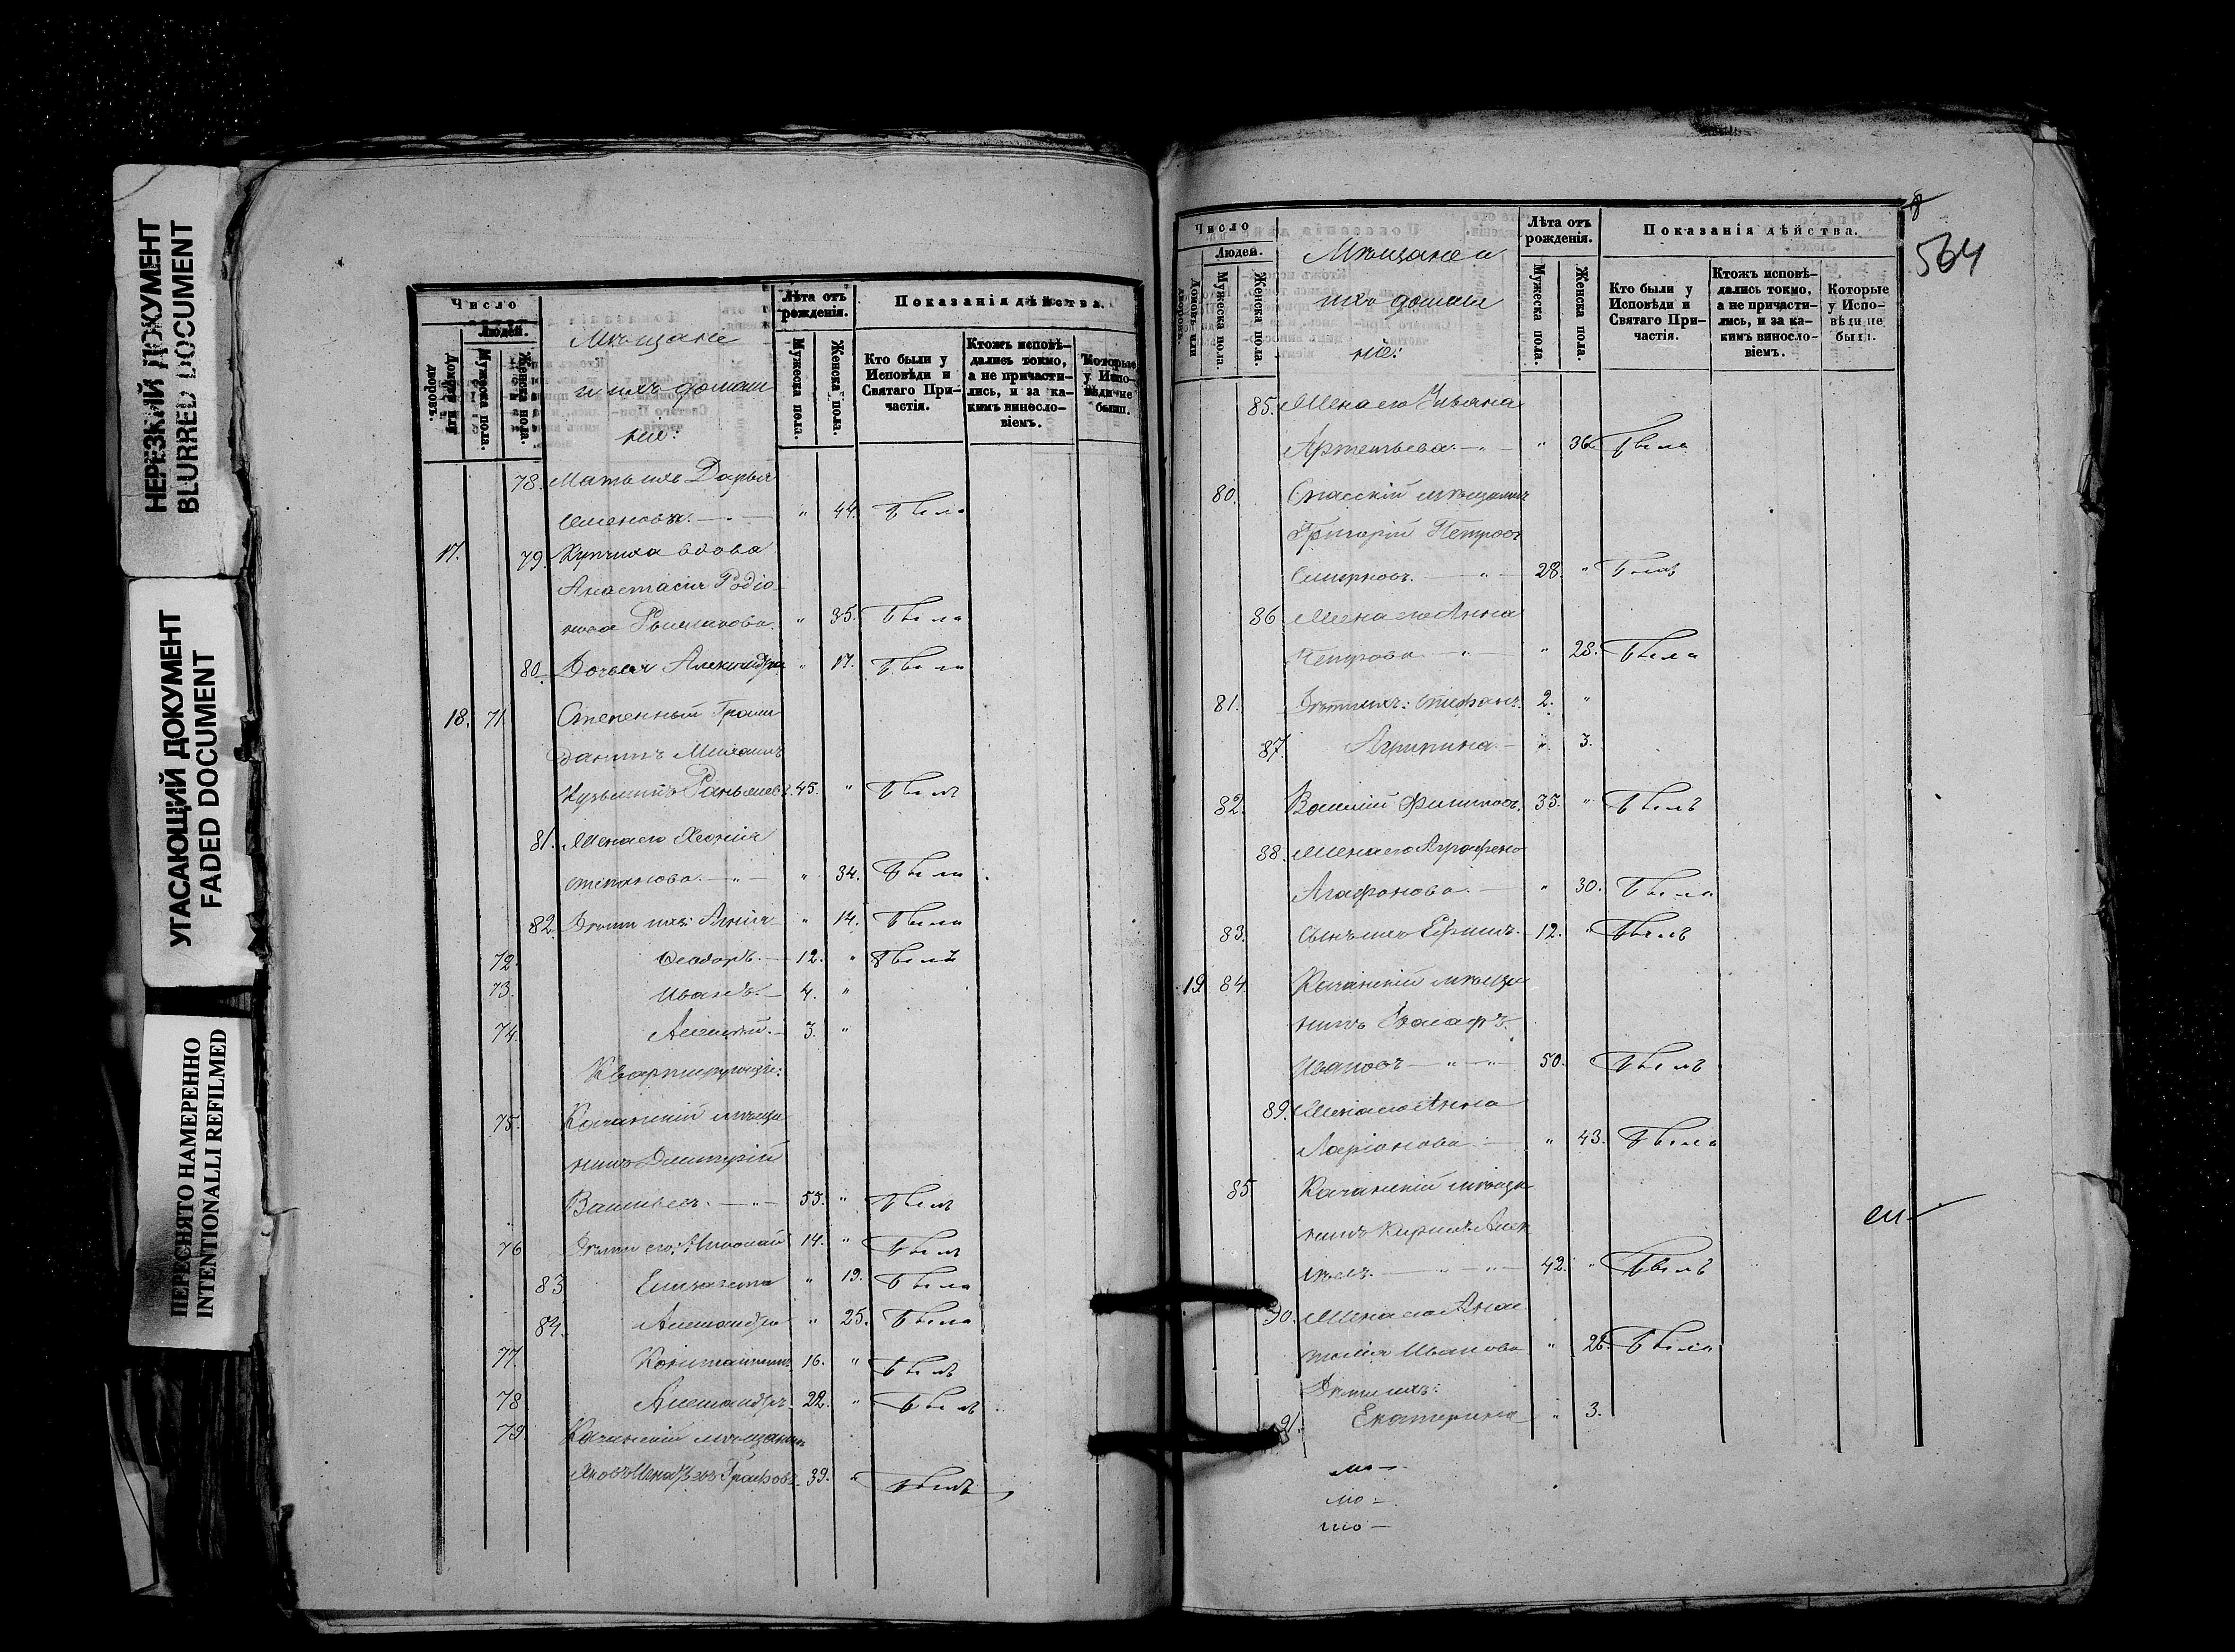 НЕРЕЗКИЙ ДОКУМЕНТ
BLURRED DOCUMENT
УГАСАЮЩИЙ ДОКУМЕНТ
FADED DOCUMENT
ПЕРЕСНЯТО НАМЕРЕННО
INTENTIONALLI REFILMED
Число
Людей.
Домовъ или дворовъ.
Мужеска пола.
Женска пола.
Мѣщане
и ихъ домаш
ніе:
Лѣта отъ рожденія.
Мужеска пола.
Женска пола.
Показанія дѣйства.
Кто были у Исповѣди и Святаго Причастія.
Ктожъ исповѣдались токмо, а не причастились, и за какимъ винословіемъ.
Которые у Исповѣди не были.
78. Мать ихъ Дарья
Семенова. — " 44. Была
17. 79. Купчиха вдова
Анастасія Родіо
нова " 35. Была
80. Дочь ея Александра " 17. Была
18. 71. Степенный Граж
данинъ Михаилъ
Кузьминъ 45. " Былъ
81. Жена его Хеонія
Степанова. — " — " 34. Была
82. Дѣти ихъ: Анна " 14. Была
72. Ѳеодоръ. — 12. " Былъ
73. Иванъ. — 4. "
74. Алексѣй. — 3. "
Квартирующіе:
75. мѣща
нинъ Димитрій
Васильевъ. — " — 53. " Былъ
76 Дѣти его: Николай 14. " Былъ
83. Елизавета " 19. Была
84. Александра " 25. Была
77. Константинъ 16. " Былъ
78. Александръ. 22. " Былъ
79. мѣщанинъ
Яковъ 39. " Былъ
564
Число
Людей.
Домовъ или дворовъ.
Мужеска пола.
Женска пола.
Мѣщане и
ихъ домаш
ніе:
Лѣта отъ рожденія.
Мужеска пола.
Женска пола.
Показанія дѣйства.
Кто были у Исповѣди и Святаго Причастія.
Ктожъ исповѣдались токмо, а не причастились, и за какимъ винословіемъ.
Которые у Исповѣди не были.
85. Жена его Ульяна
Артемьева. — " — " 36. Была
80. Спасскій мѣщанинъ
Григорій Петровъ
Смирновъ. — " — 28. " Былъ
86 Жена его Анна
Петрова — " — " 28. Была
81. Дѣти ихъ: Стефанъ 2. "
87. Агрипина. — " 3.
82. Василій Филиповъ. 35. " Былъ
88. Жена его Аграфена
Агафонова. — " 30. Была
83. Сынъ ихъ Ефимъ. 12. " Былъ
19 84. мѣща
нинъ
Ивановъ — " — " — 50. Былъ
89. Жена его Анна
Ларіонова — " 43. Была
85. мѣща
нинъ Кирилъ Алек
сѣевъ. — " — " — 42. " Былъ
90. Жена его Анас
тасія Иванова " 26. Была
Дѣти ихъ:
91. Екатерина " 3.